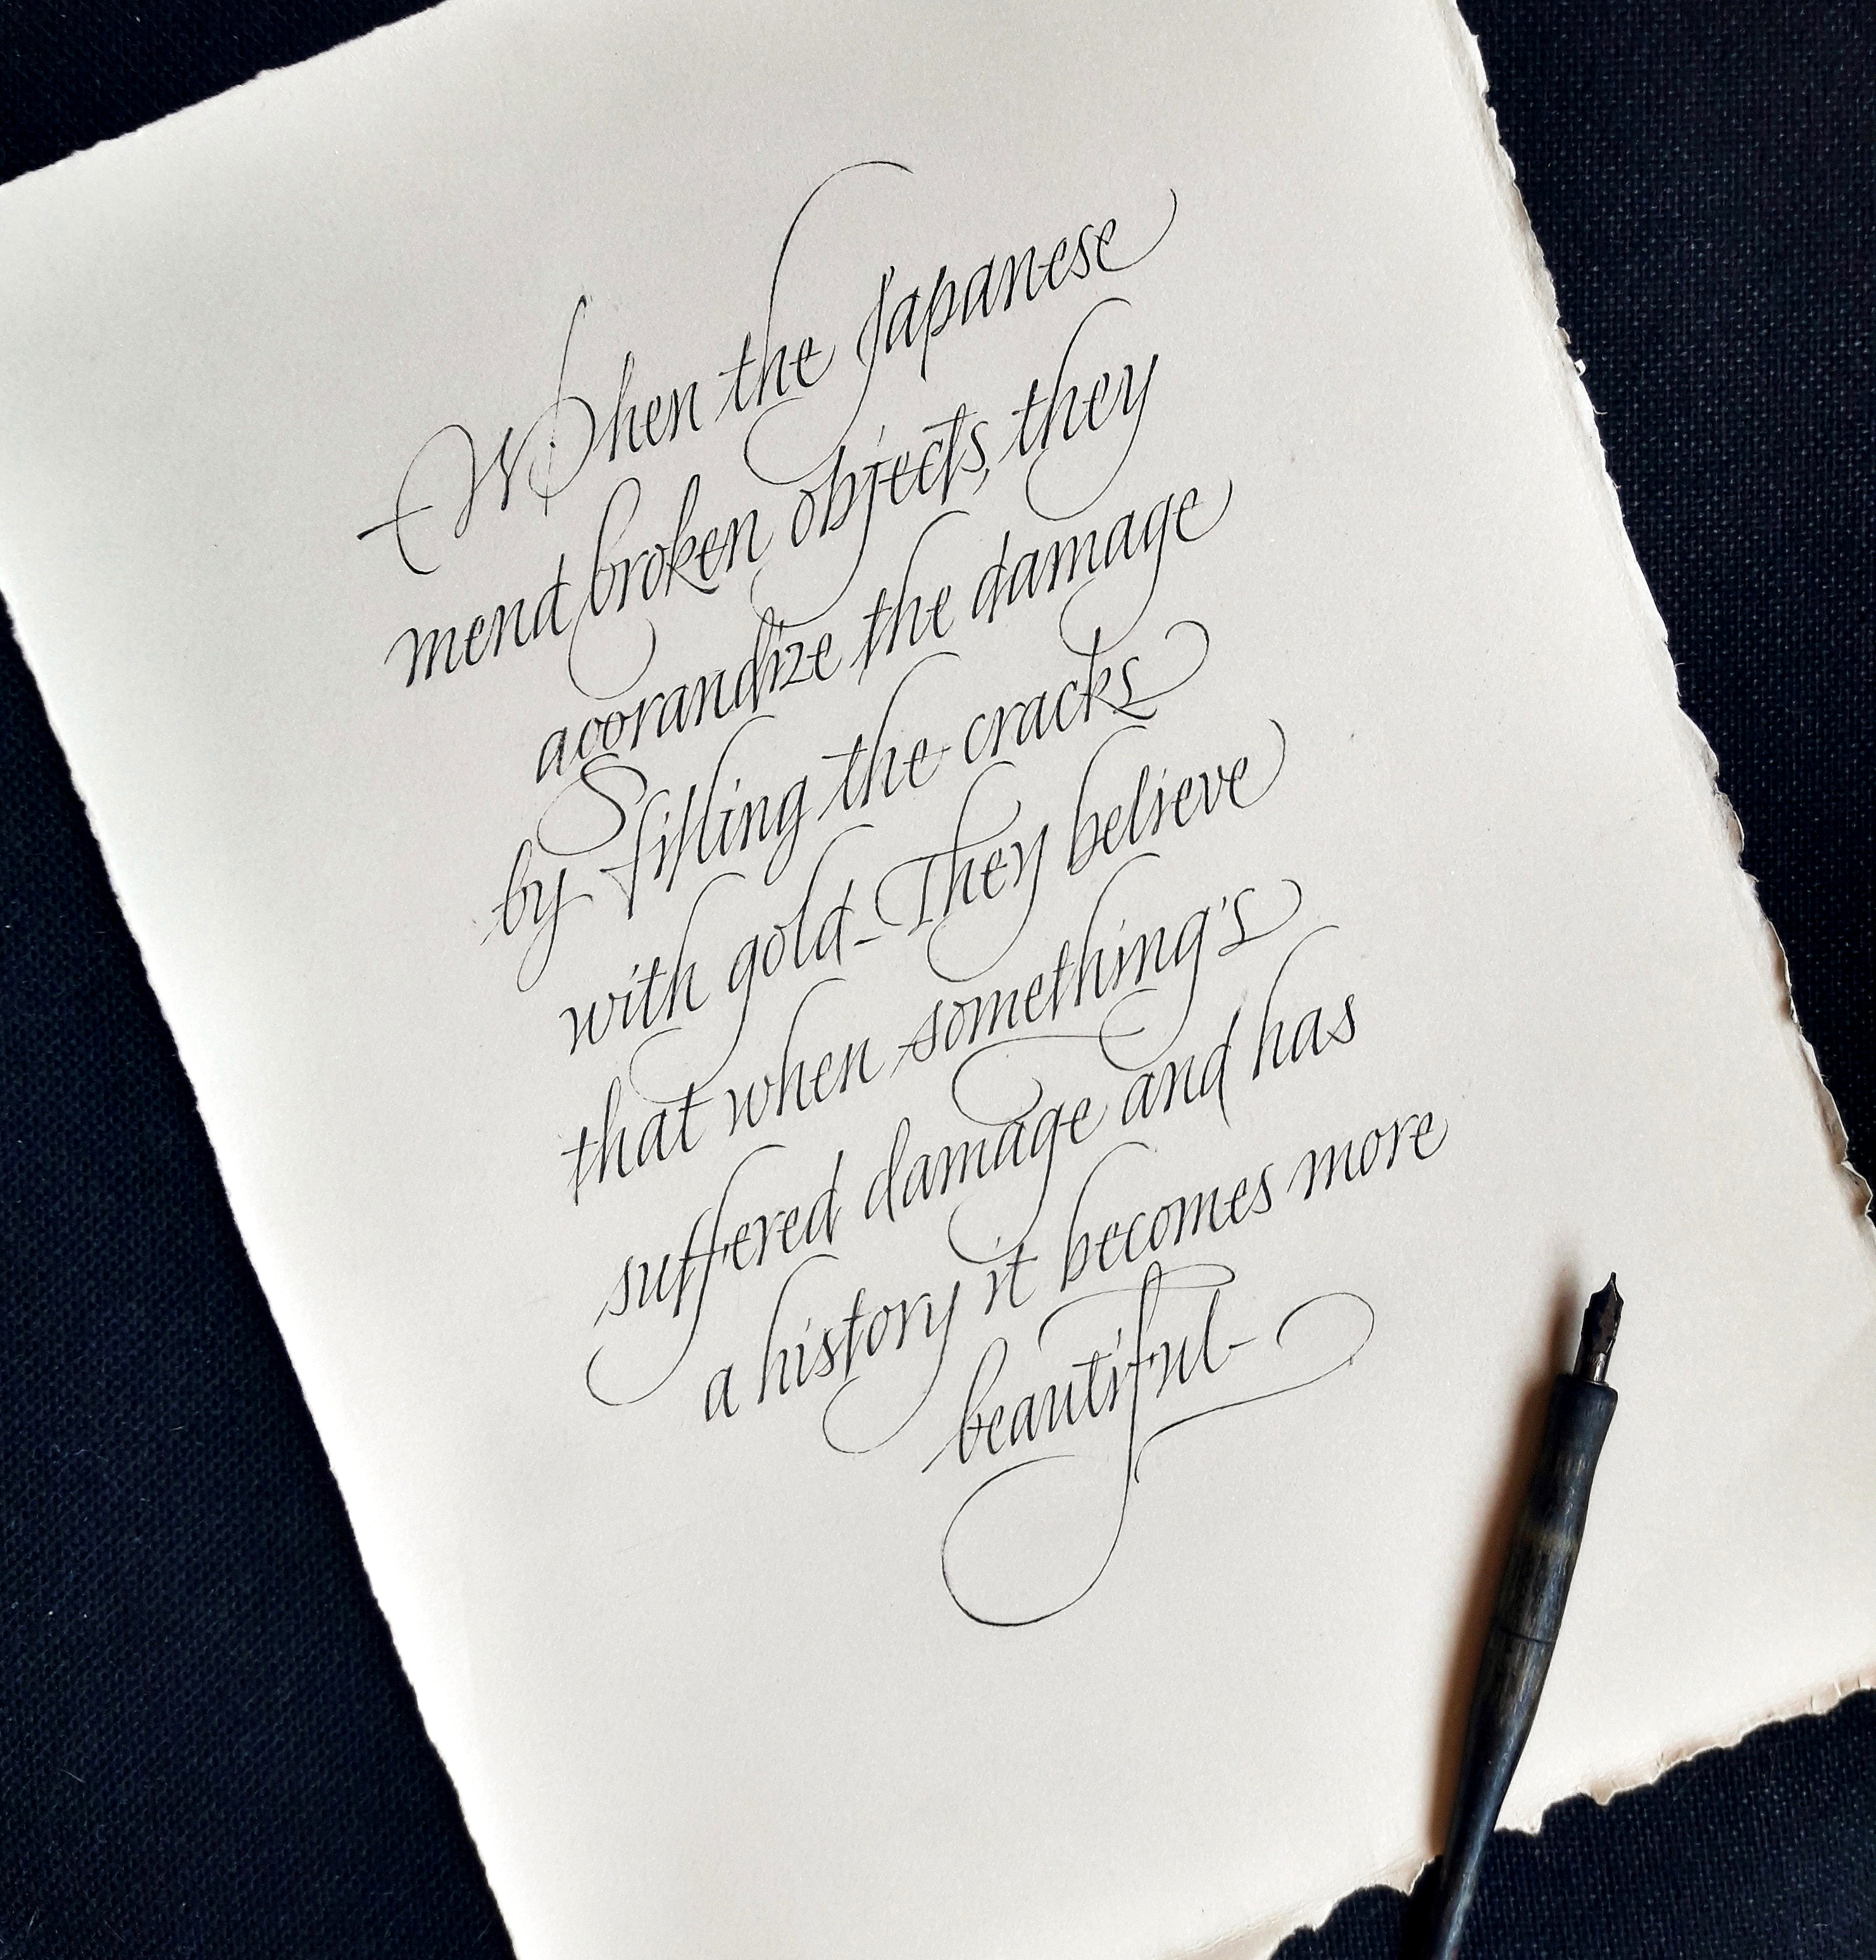 When the Japanese
mend broken objects, they
aggrandize the damage
by filling the cracks
with gold- They believe
that when something's
suffered damage and has
a history it becomes more
beautiful-